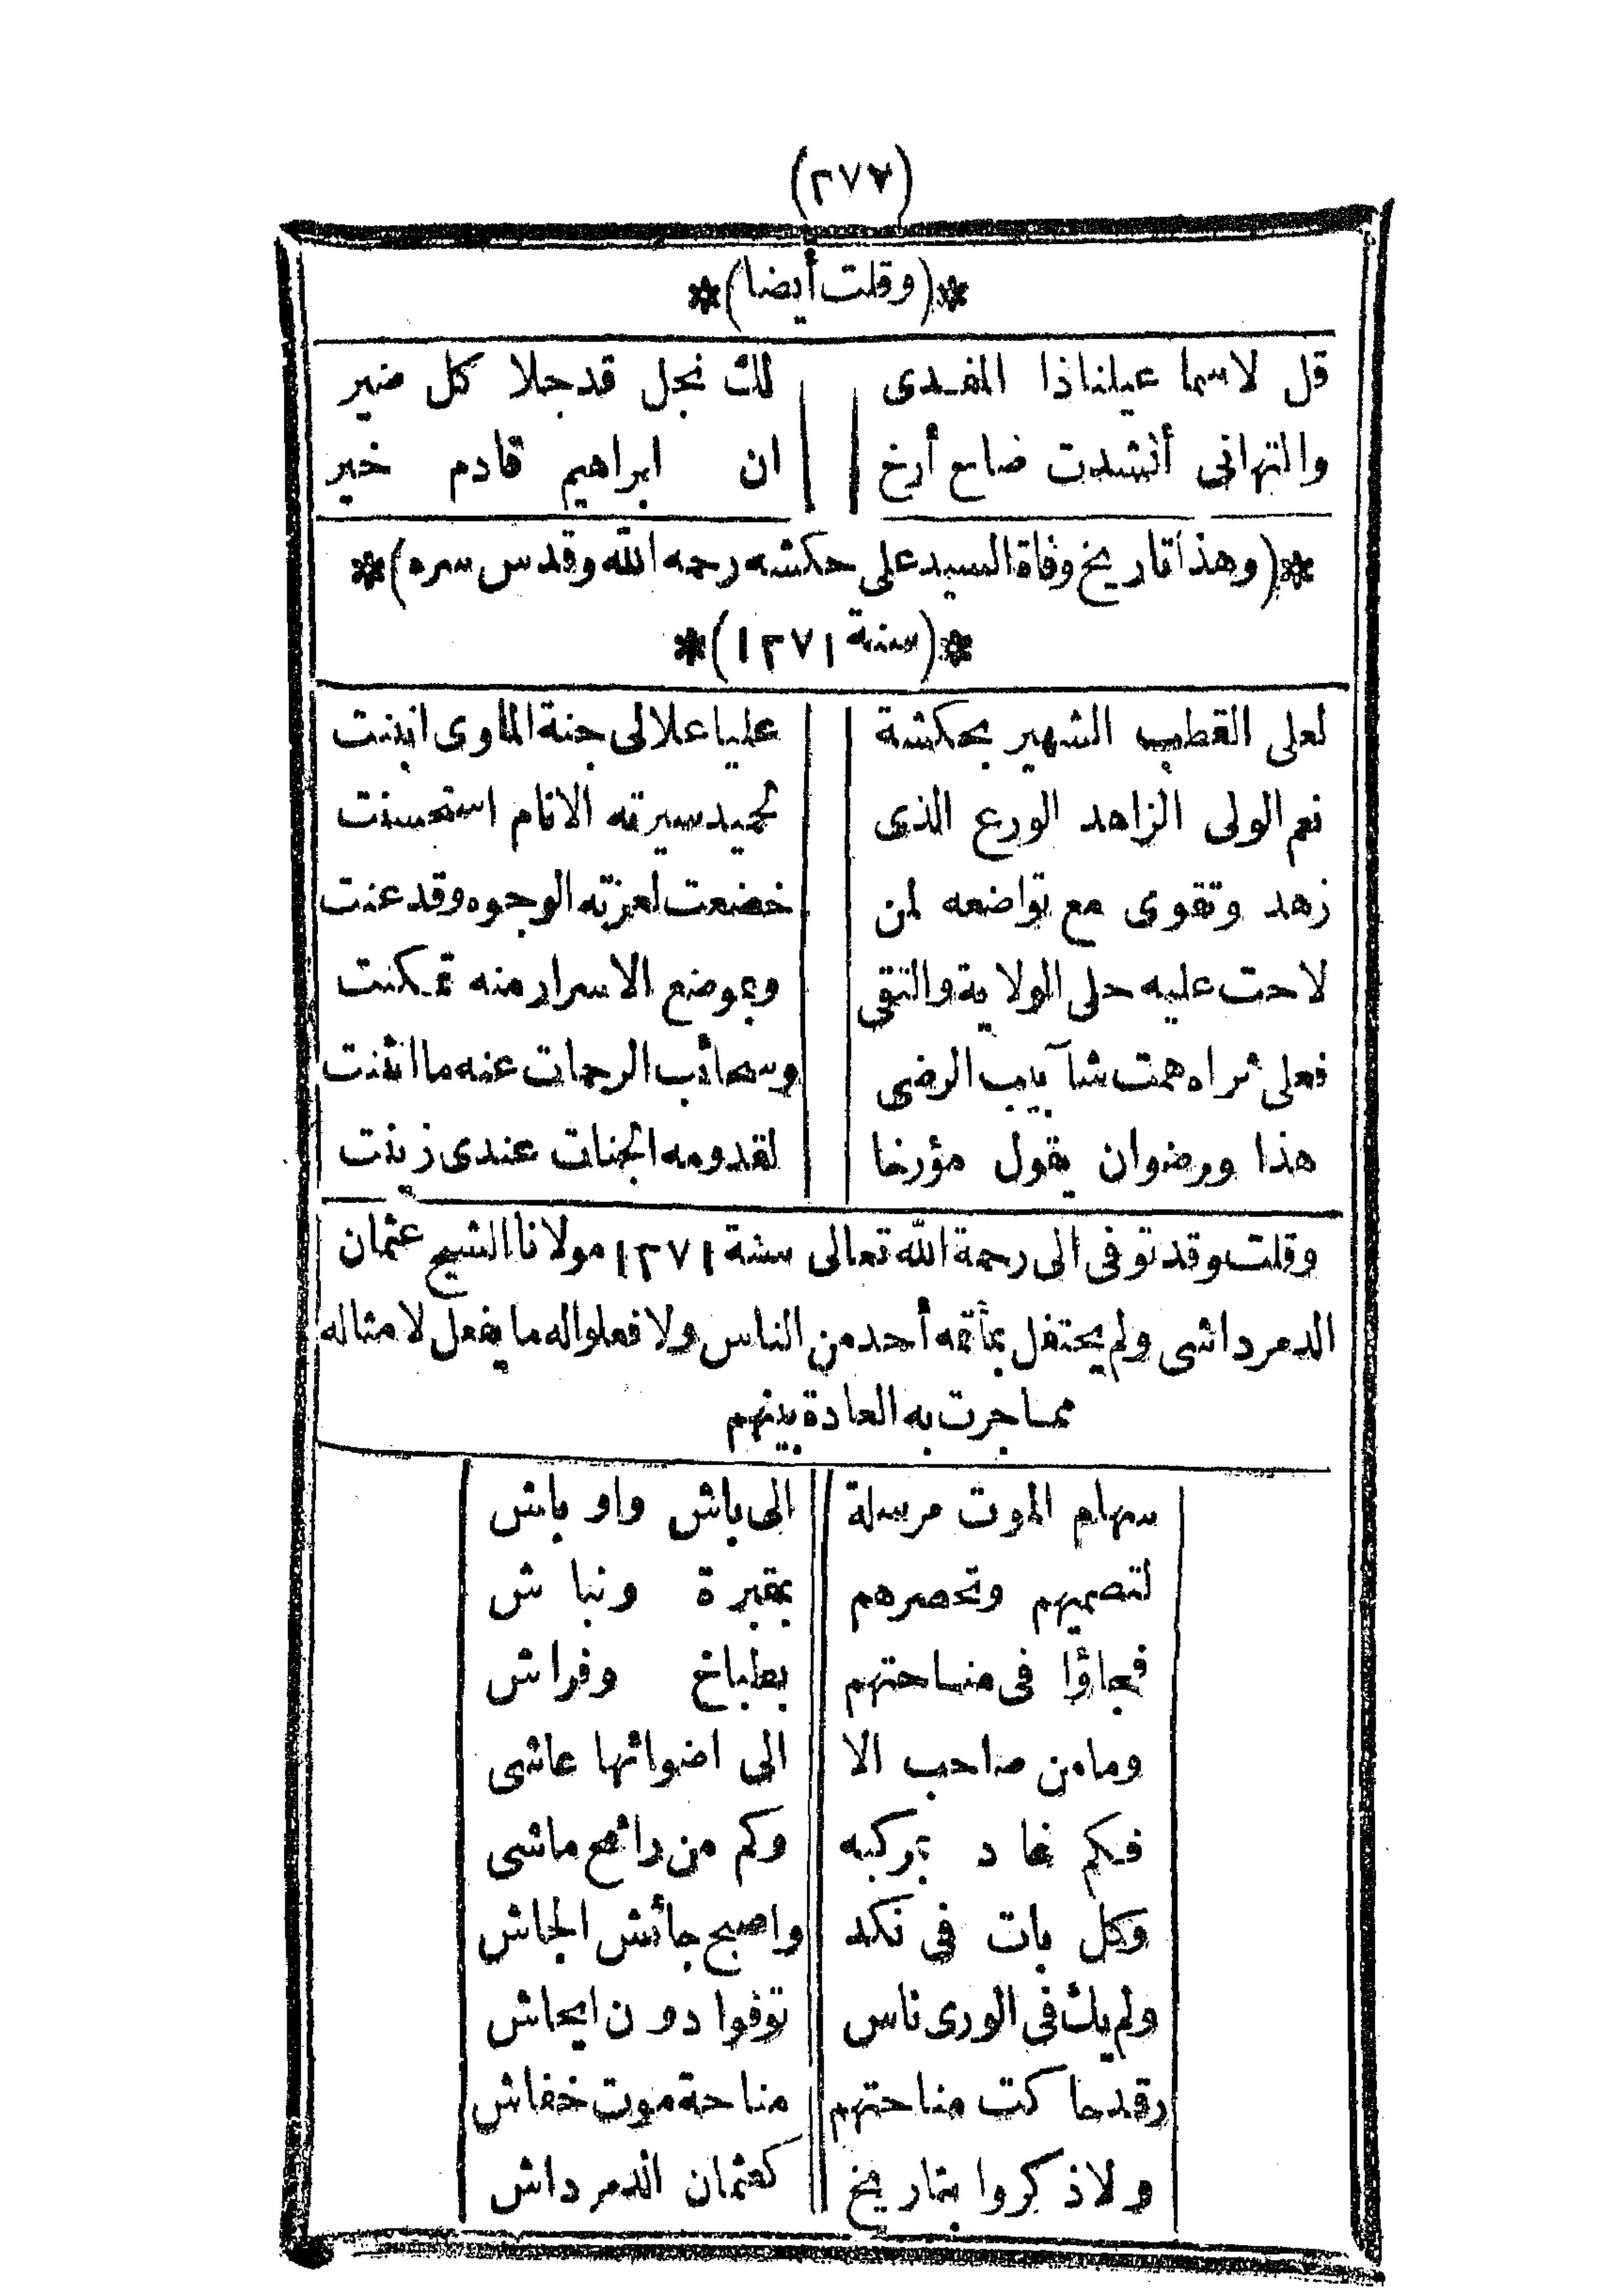 (٢٧٧)
*(وقلت أيضا)*
قل لاسما عيلنا ذا المفدى لك نجل قد جلا كل منير
والتهانى أنشدت ضاع أرخ ان ابراهيم قادم خير
*(وهذا تاريخ وفاة السيد على حكشه رحمه الله وقدس سره)*
*(سنة ١٢٧١)*
لعلى القطب الشهير بحكشة عليا علا لى جنة المأوى ابتنت
نعم الولى الزاهد الورع الذى لحميد سيرته الانام استحسنت
زهد وتقوى مع تواضعه لمن خضعت لعزته الوجوه وقد عنت
لاحت عليه حلى الولاية والتقى وبموضع الاسرار منه تمكنت
فعلى ثراه همت شآبيب الرضى وسحائب الرحمات عنه ما انثنت
هذا ورضوان يقول مؤرخا لقدومه الجنات عندى زينت
وقلت وقد توفى الى رحمة الله تعالى سنة ١٢٧١ مولانا الشيخ عثمان
الدمرداشى ولم يحتفل بمأتمه أحد من الناس ولا فعلوا له ما يفعل لامثاله
مما جرت به العادة بينهم
سهام الموت مرسلة الى باش واو باش
لتصميهم وتحصرهم بمقبرة ونباش
فجاؤا فى مناحتهم بطباخ وفراش
وما من صاحب الا الى اضوائها عاشى
فكم غاد بمركبه وكم من رائح ماشى
وكل بات فى نكد واصبح جائش الجاش
ولم يك فى الورى ناس توفوا دون ايحاش
وقد حاكت مناحتهم مناحة موت خفاش
ولا ذكروا بتاريخ كعثمان الدمرداش